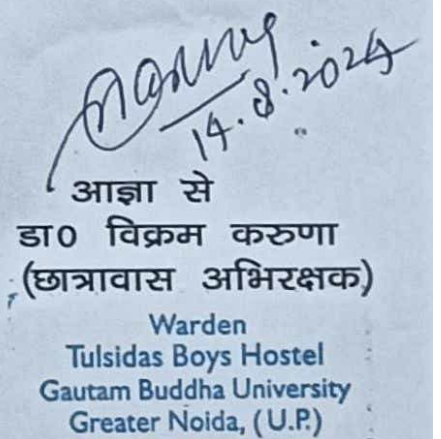 14.8.2024
आज्ञा से
डा० विक्रम करुणा
(छात्रावास अभिरक्षक)
Warden
Tulsidas Boys Hostel
Gautam Buddha University
Greater Noida, (U.P.)